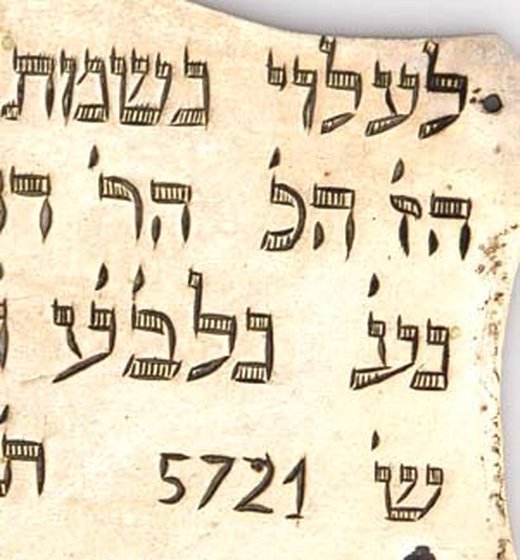 לעלוי נשמת
הז' הכ' הר'
נע' נלב'ע'
ש' 5721